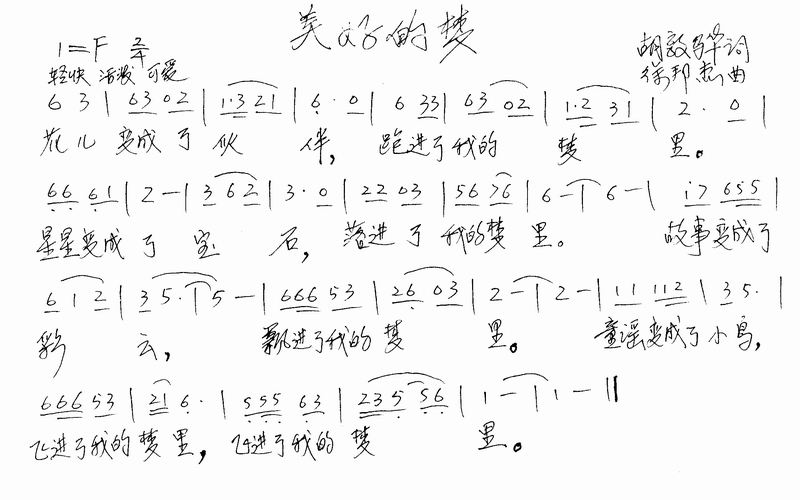 美好的梦
1=F 2/4
轻快 活泼 可爱
胡敦骅词
徐邦杰曲
6 3 | 63 02 | 1·3 21 | 6· 0 | 6 33 | 63 02 | 1·2 31 | 2· 0 |
花儿 变成了伙伴, 跑进了我的 梦 里。
66 61 | 2 - | 3 62 | 3· 0 | 22 03 | 56 76 | 6 - | 6 - | i7 655 |
星星变成了宝石, 落进了我的梦里。 故事变成了
6 1 2 | 3 5· | 5 - | 666 53 | 26 03 | 2 - | 2 - | 11 112 | 3 5· |
彩云, 飘进了我的梦 里。 童谣变成了小鸟,
666 53 | 21 6· | 555 63 | 235 56 | 1 - | 1 - ||
飞进了我的梦里, 飞进了我的 梦 里。